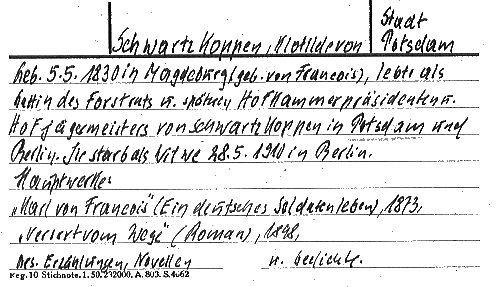 Schwartzkoppen, Klotilde von
Stadt
Potsdam
Geb. 5.5.1830 in Magdeburg (geb. von Francois), lebte als
Gattin des Forstrats u. späteren Hofkammerpräsidenten u.
Hofjägermeisters von Schwartzkoppen in Potsdam und
Berlin. Sie starb als Witwe 28.5.1910 in Berlin.
Hauptwerke:
„Karl von Francois" (Ein deutsches Soldatenleben), 1873,
„Verirrt vom Wege" (Roman), 1898,
Erzählungen, Novellen u. Gedichte.
Reg. 10 Stichnote. 1. 50. 232000. A. 803. S. 4662